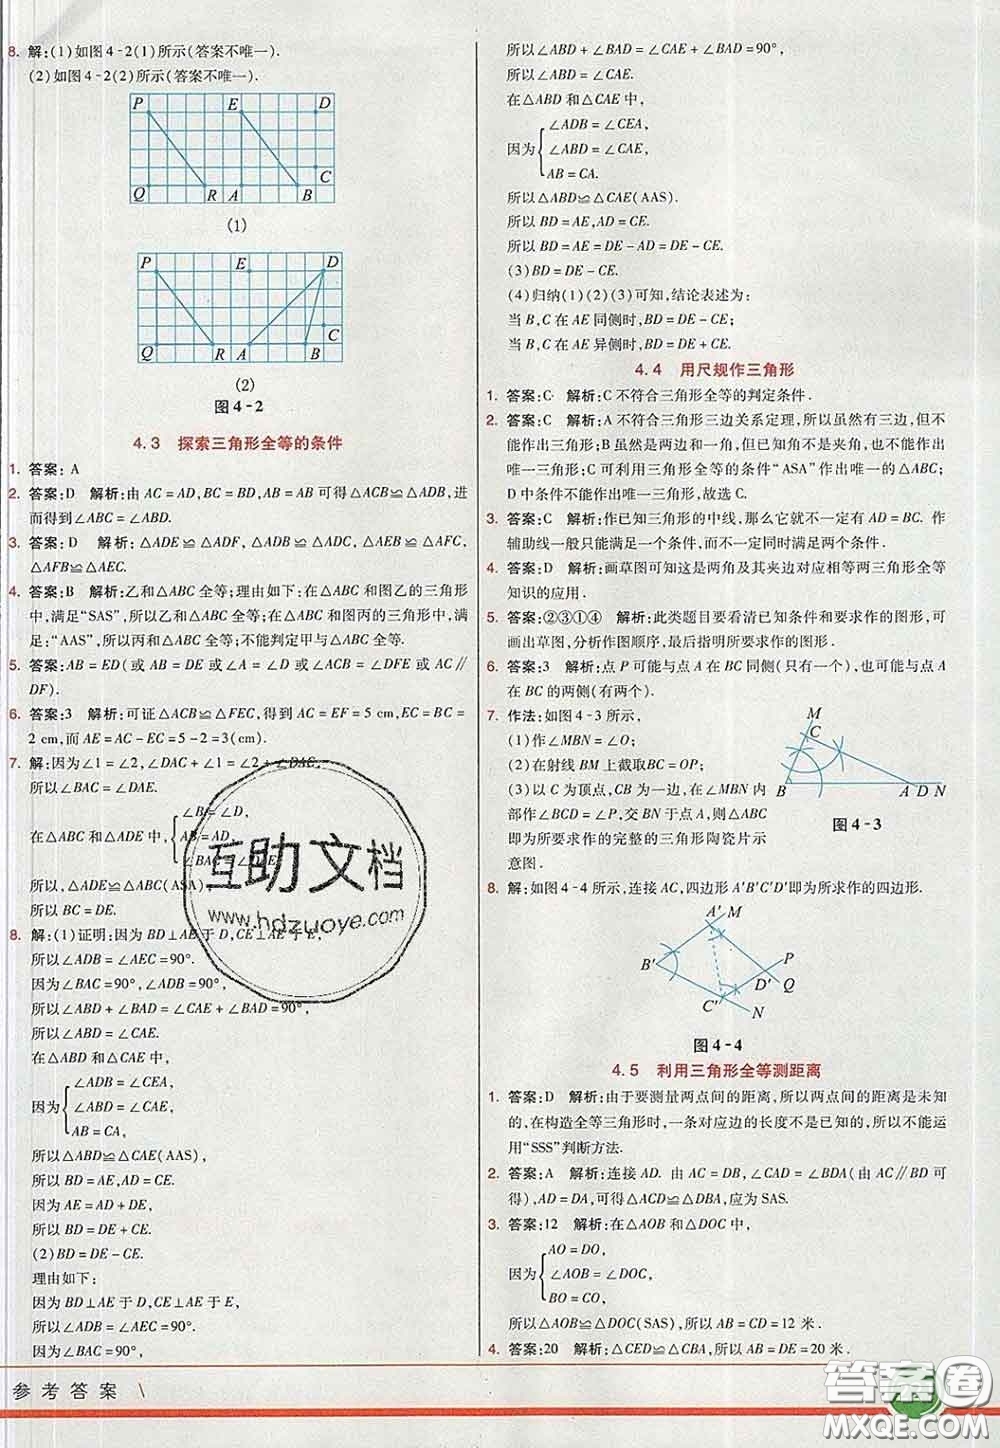 8. 解:(1)如图4-2(1)所示(答案不唯一).
(2)如图4-2(2)所示(答案不唯一).
P E D
C
Q R A B
(1)
P E D
C
Q R A B
(2)
图4-2
4.3 探索三角形全等的条件
1. 答案:A
2. 答案:D 解析:由AC=AD,BC=BD,AB=AB可得△ACB≌△ADB,进
而得到∠ABC=∠ABD.
3. 答案:D 解析:△ADE≌△ADF,△ADB≌△ADC,△AEB≌△AFC,
△AFB≌△AEC.
4. 答案:B 解析:乙和△ABC全等;理由如下:在△ABC和图乙的三角形
中,满足“SAS”,所以乙和△ABC全等;在△ABC和图丙的三角形中,满
足:“AAS”,所以丙和△ABC全等;不能判定甲与△ABC全等.
5. 答案:AB=ED(或AB=DE或∠A=∠D或∠ABC=∠DFE或AC∥
DF).
6. 答案:3 解析:可证△ACB≌△FEC,得到AC=EF=5 cm,EC=BC=
2 cm,而AE=AC-EC=5-2=3(cm).
7. 解:因为∠1=∠2,∠DAC+∠1=∠2+∠DAC.
所以∠BAC=∠DAE.
在△ABC和△ADE中,
∠B=∠D,
AB=AD,
∠BAC=∠DAE,
所以,△ADE≌△ABC(ASA).
所以BC=DE.
8. 解:(1)证明:因为BD⊥AE于D,CE⊥AE于E,
所以∠ADB=∠AEC=90°.
因为∠BAC=90°,∠ADB=90°,
所以∠ABD+∠BAD=∠CAE+∠BAD=90°,
所以∠ABD=∠CAE.
在△ABD和△CAE中,
因为
∠ADB=∠CEA,
∠ABD=∠CAE,
AB=CA,
所以△ABD≌△CAE(AAS).
所以BD=AE,AD=CE.
因为AE=AD+DE,
所以BD=DE+CE.
(2)BD=DE-CE.
理由如下:
因为BD⊥AE于D,CE⊥AE于E,
所以∠ADB=∠AEC=90°.
因为∠BAC=90°,
所以∠ABD+∠BAD=∠CAE+∠BAD=90°,
所以∠ABD=∠CAE.
在△ABD和△CAE中,
因为
∠ADB=∠CEA,
∠ABD=∠CAE,
AB=CA.
所以△ABD≌△CAE(AAS).
所以BD=AE,AD=CE.
所以BD=AE=DE-AD=DE-CE.
(3)BD=DE-CE.
(4)归纳(1)(2)(3)可知,结论表述为:
当B,C在AE同侧时,BD=DE-CE;
当B,C在AE异侧时,BD=DE+CE.
4.4 用尺规作三角形
1. 答案:C 解析:C不符合三角形全等的判定条件.
2. 答案:C 解析:A不符合三角形三边关系定理,所以虽然有三边,但不
能作出三角形;B虽然是两边和一角,但已知角不是夹角,也不能作出
唯一三角形;C可利用三角形全等的条件“ASA”作出唯一的△ABC;
D中条件不能作出唯一三角形,故选C.
3. 答案:C 解析:作已知三角形的中线,那么它就不一定有AD=BC. 作
辅助线一般只能满足一个条件,而不一定同时满足两个条件.
4. 答案:D 解析:画草图可知这是两角及其夹边对应相等两三角形全等
知识的应用.
5. 答案:②③①④ 解析:此类题目要看清已知条件和要求作的图形,可
画出草图,分析作图顺序,最后指明所要求作的图形.
6. 答案:3 解析:点P可能与点A在BC同侧(只有一个),也可能与点A
在BC的两侧(有两个).
7. 作法:如图4-3所示,
(1)作∠MBN=∠O;
(2)在射线BM上截取BC=OP;
(3)以C为顶点,CB为一边,在∠MBN内
部作∠BCD=∠P,交BN于点A,△ABC
即为所要求作的完整的三角形陶瓷片示
意图.
M
C
B A D N
图4-3
8. 解:如图4-4所示,连接AC,四边形A′B′C′D′即为所求作的四边形.
A′ M
B′ P
D′ Q
C′ N
图4-4
4.5 利用三角形全等测距离
1. 答案:D 解析:由于要测量两点间的距离,所以两点间的距离是未知
的,在构造全等三角形时,一条对应边的长度不是已知的,所以不能运
用“SSS”判断方法.
2. 答案:A 解析:连接AD. 由AC=DB,∠CAD=∠BDA(由AC∥BD可
得),AD=DA,可得△ACD≌△DBA,应为SAS.
3. 答案:12 解析:在△AOB和△DOC中,
因为
AO=DO,
∠AOB=∠DOC,
BO=CO,
所以△AOB≌△DOC,所以AB=CD=12米.
4. 答案:20 解析:△CED≌△CBA,所以AB=DE=20米.
互助文档
www.hdzuoye.com
参考答案
答案圈
MXQE.COM